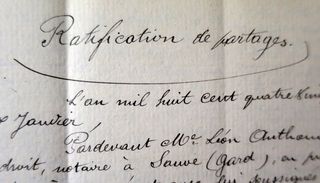 Ratification de partages.
L'an mil huit cent quatre
Janvier,
Pardevant Me Léon
droit, notaire à Sauve (Gard),